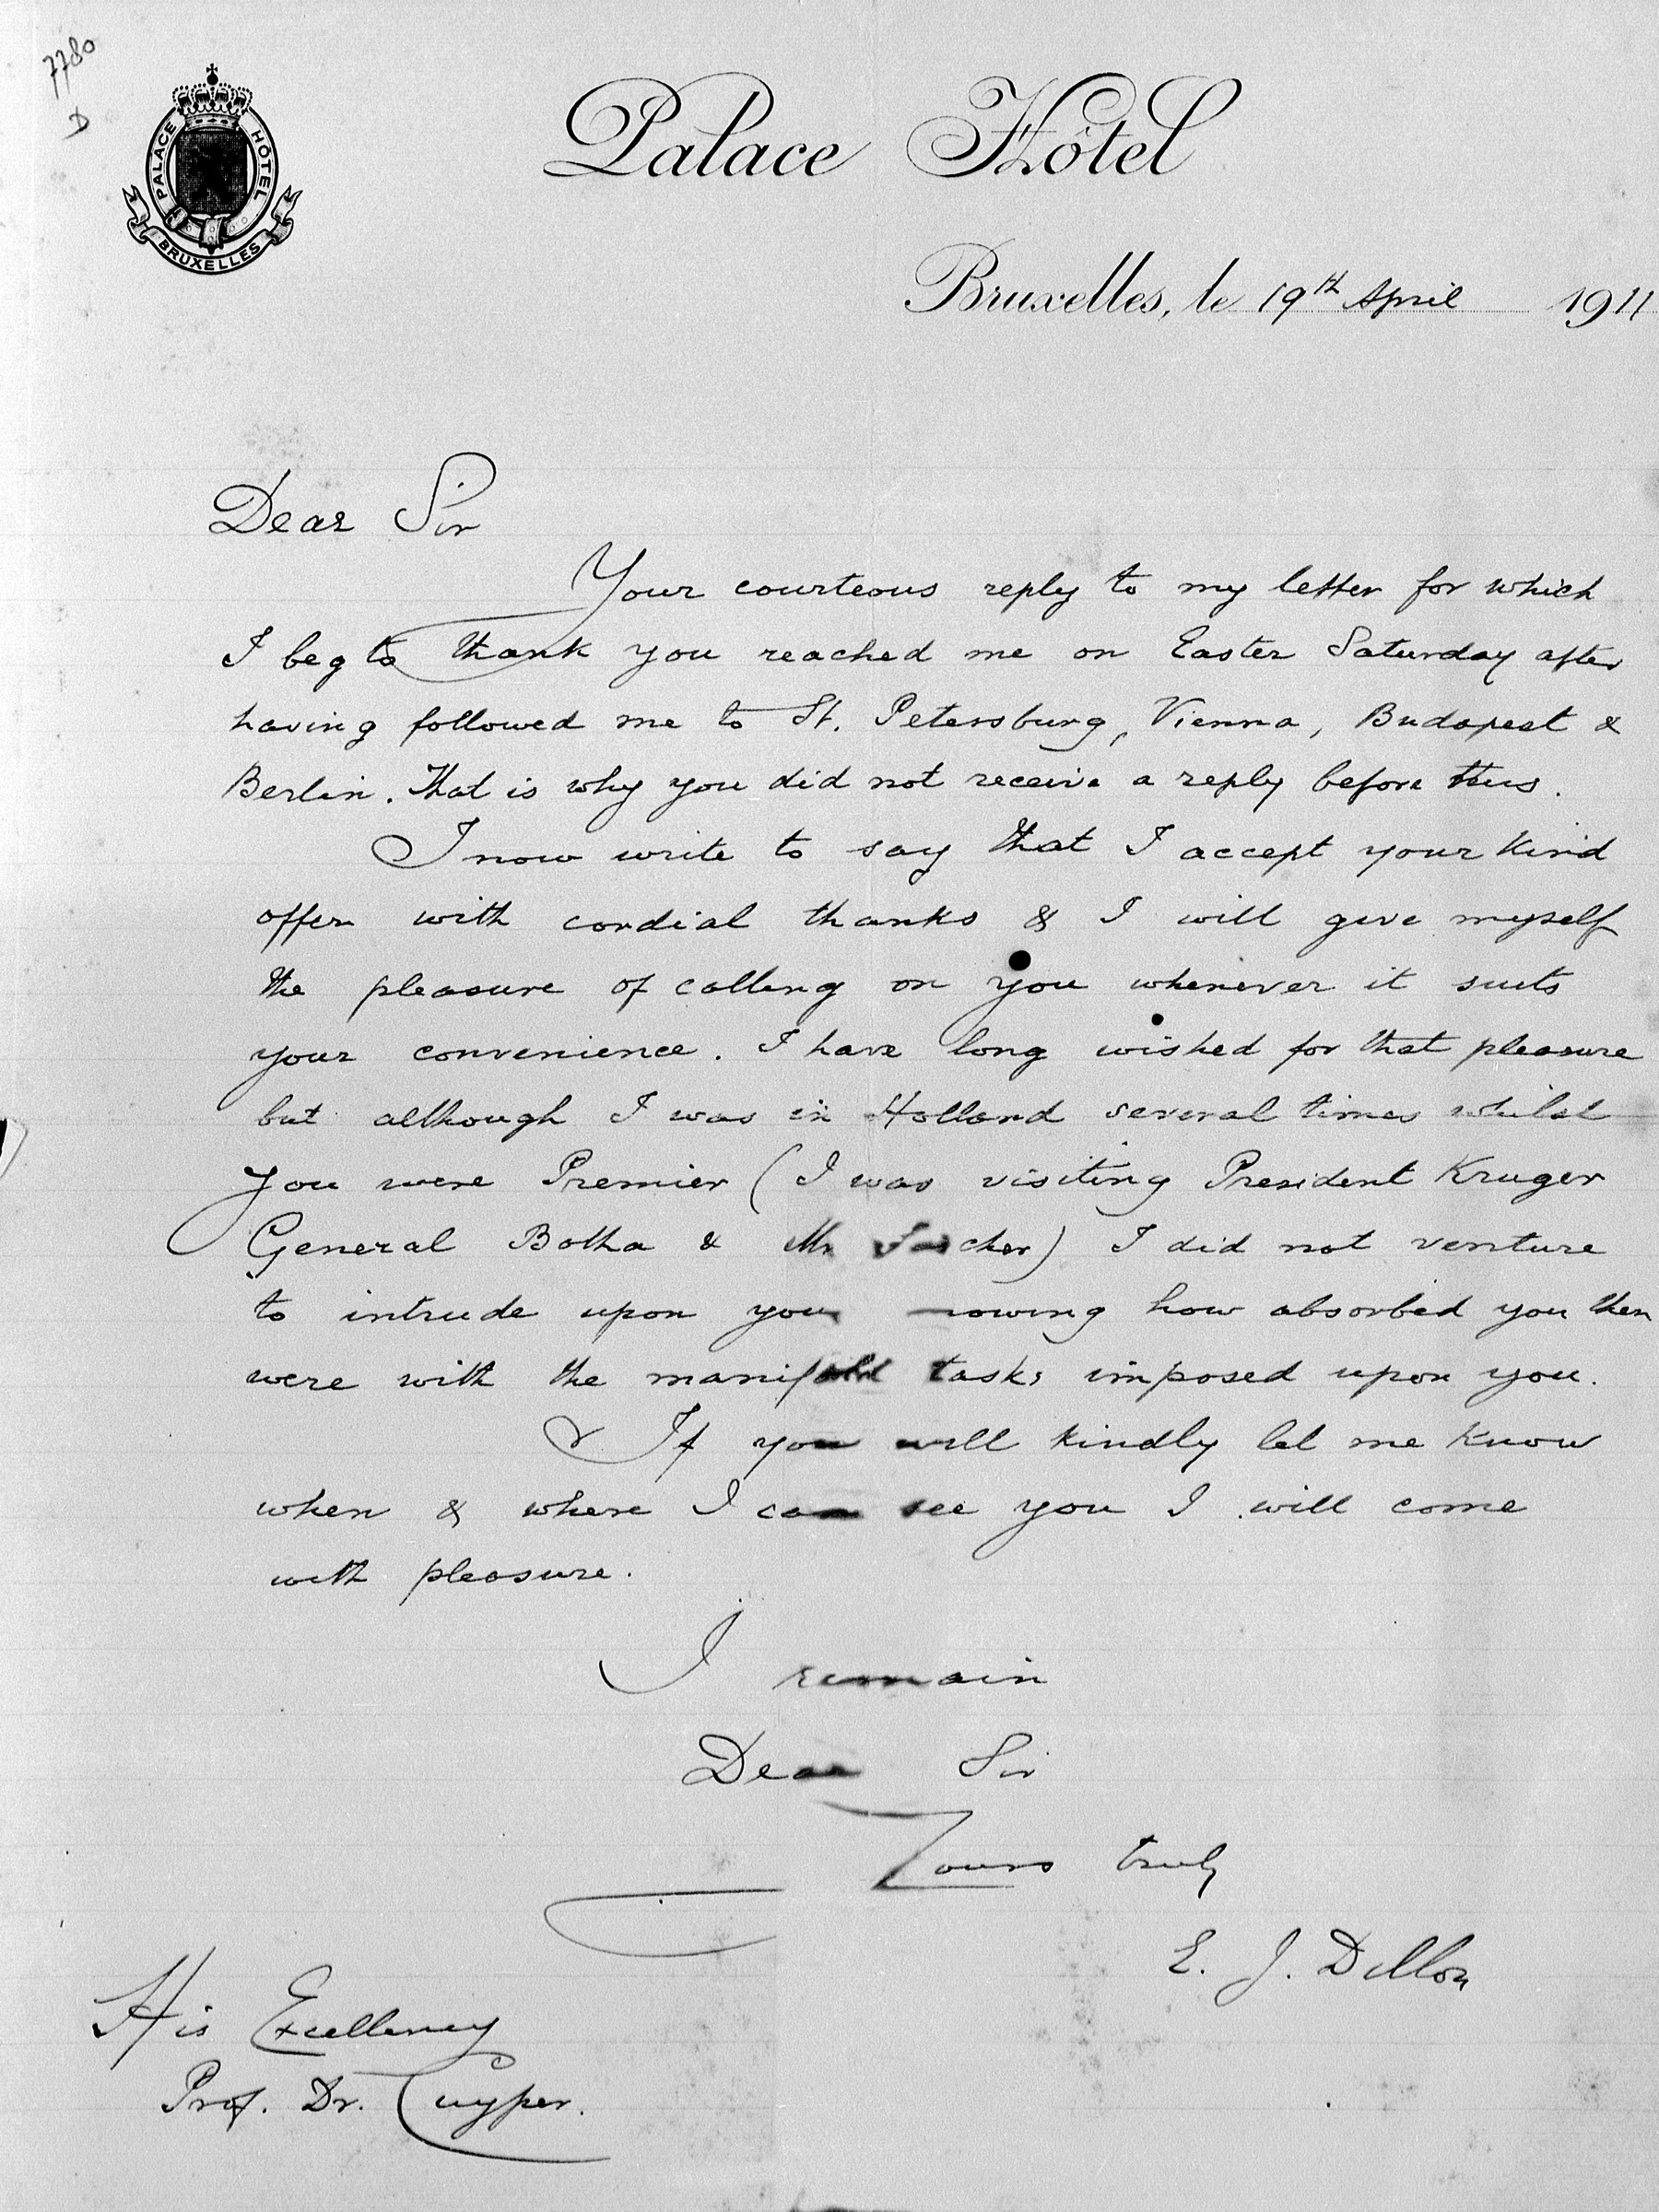 7780
D
PALACE HÔTEL
BRUXELLES
Palace Hôtel
Bruxelles, le 19th April 1911
Dear Sir
Your courteous reply to my letter for which
I beg to thank you reached me on Easter Saturday after
having followed me to St. Petersburg, Vienna, Budapest &
Berlin. That is why you did not receive a reply before this.
I now write to say that I accept your kind
offer with cordial thanks & I will give myself
the pleasure of calling on you whenever it suits
your convenience. I have long wished for that pleasure
but although I was in Holland several times whilst
you were Premier (I was visiting President Kruger
General Botha & Mr I did not venture
to intrude upon you knowing how absorbed you then
were with the manifold tasks imposed upon you.
& If you will kindly let me know
when & where I can see you I will come
with pleasure.
I remain
Dear Sir
Yours truly
E. J. Dillon
His Excellency
Prof. Dr. Cuyper.